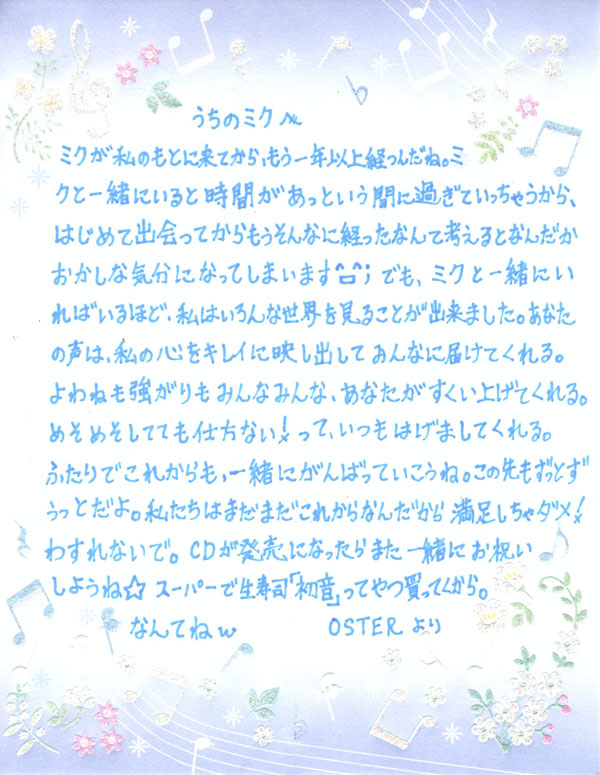 うちのミクへ
ミクが私のもとに来てから、もう一年以上経つんだね。ミ
クと一緒にいると時間があっという間に過ぎていっちゃうから、
はじめて出会ってからもうそんなに経ったなんて考えるとなんだか
おかしな気分になってしまいます^□^; でも、ミクと一緒にい
ればいるほど、私はいろんな世界を見ることが出来ました。あなた
の声は、私の心をキレイに映し出してみんなに届けてくれる。
よわねも強がりもみんなみんな、あなたがすくい上げてくれる。
めそめそしてても仕方ない!って、いつもはげましてくれる。
ふたりでこれからも、一緒にがんばっていこうね。この先もずっとず
うっとだよ。私たちはまだまだこれからなんだから満足しちゃダメ!
わすれないで。CDが発売になったらまた一緒にお祝い
しようね☆ スーパーで生寿司「初音」ってやつ買ってくから。
なんてねw OSTERより